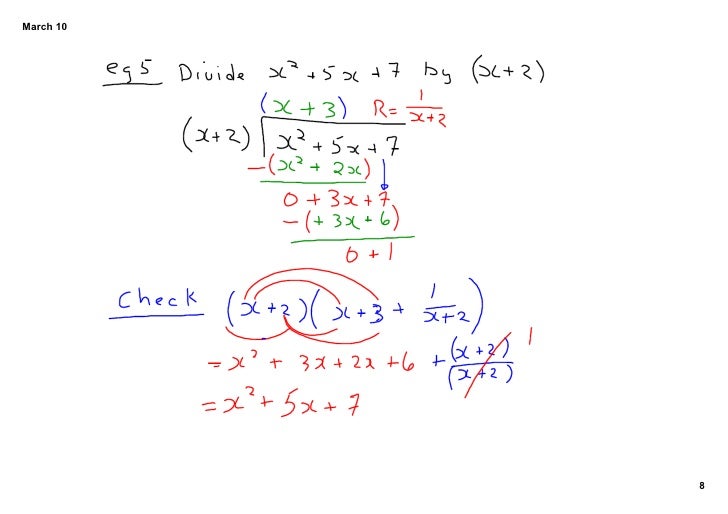 March 10
eg 5 Divide x² + 5x + 7 by (x+2)
(x + 3) R = 1/(x+2)
(x+2) x² + 5x + 7
-(x² + 2x)
0 + 3x + 7
-(+3x + 6)
0 + 1
Check (x+2)(x+3 + 1/(x+2))
= x² + 3x + 2x + 6 + (x+2)/(x+2) 1
= x² + 5x + 7
8